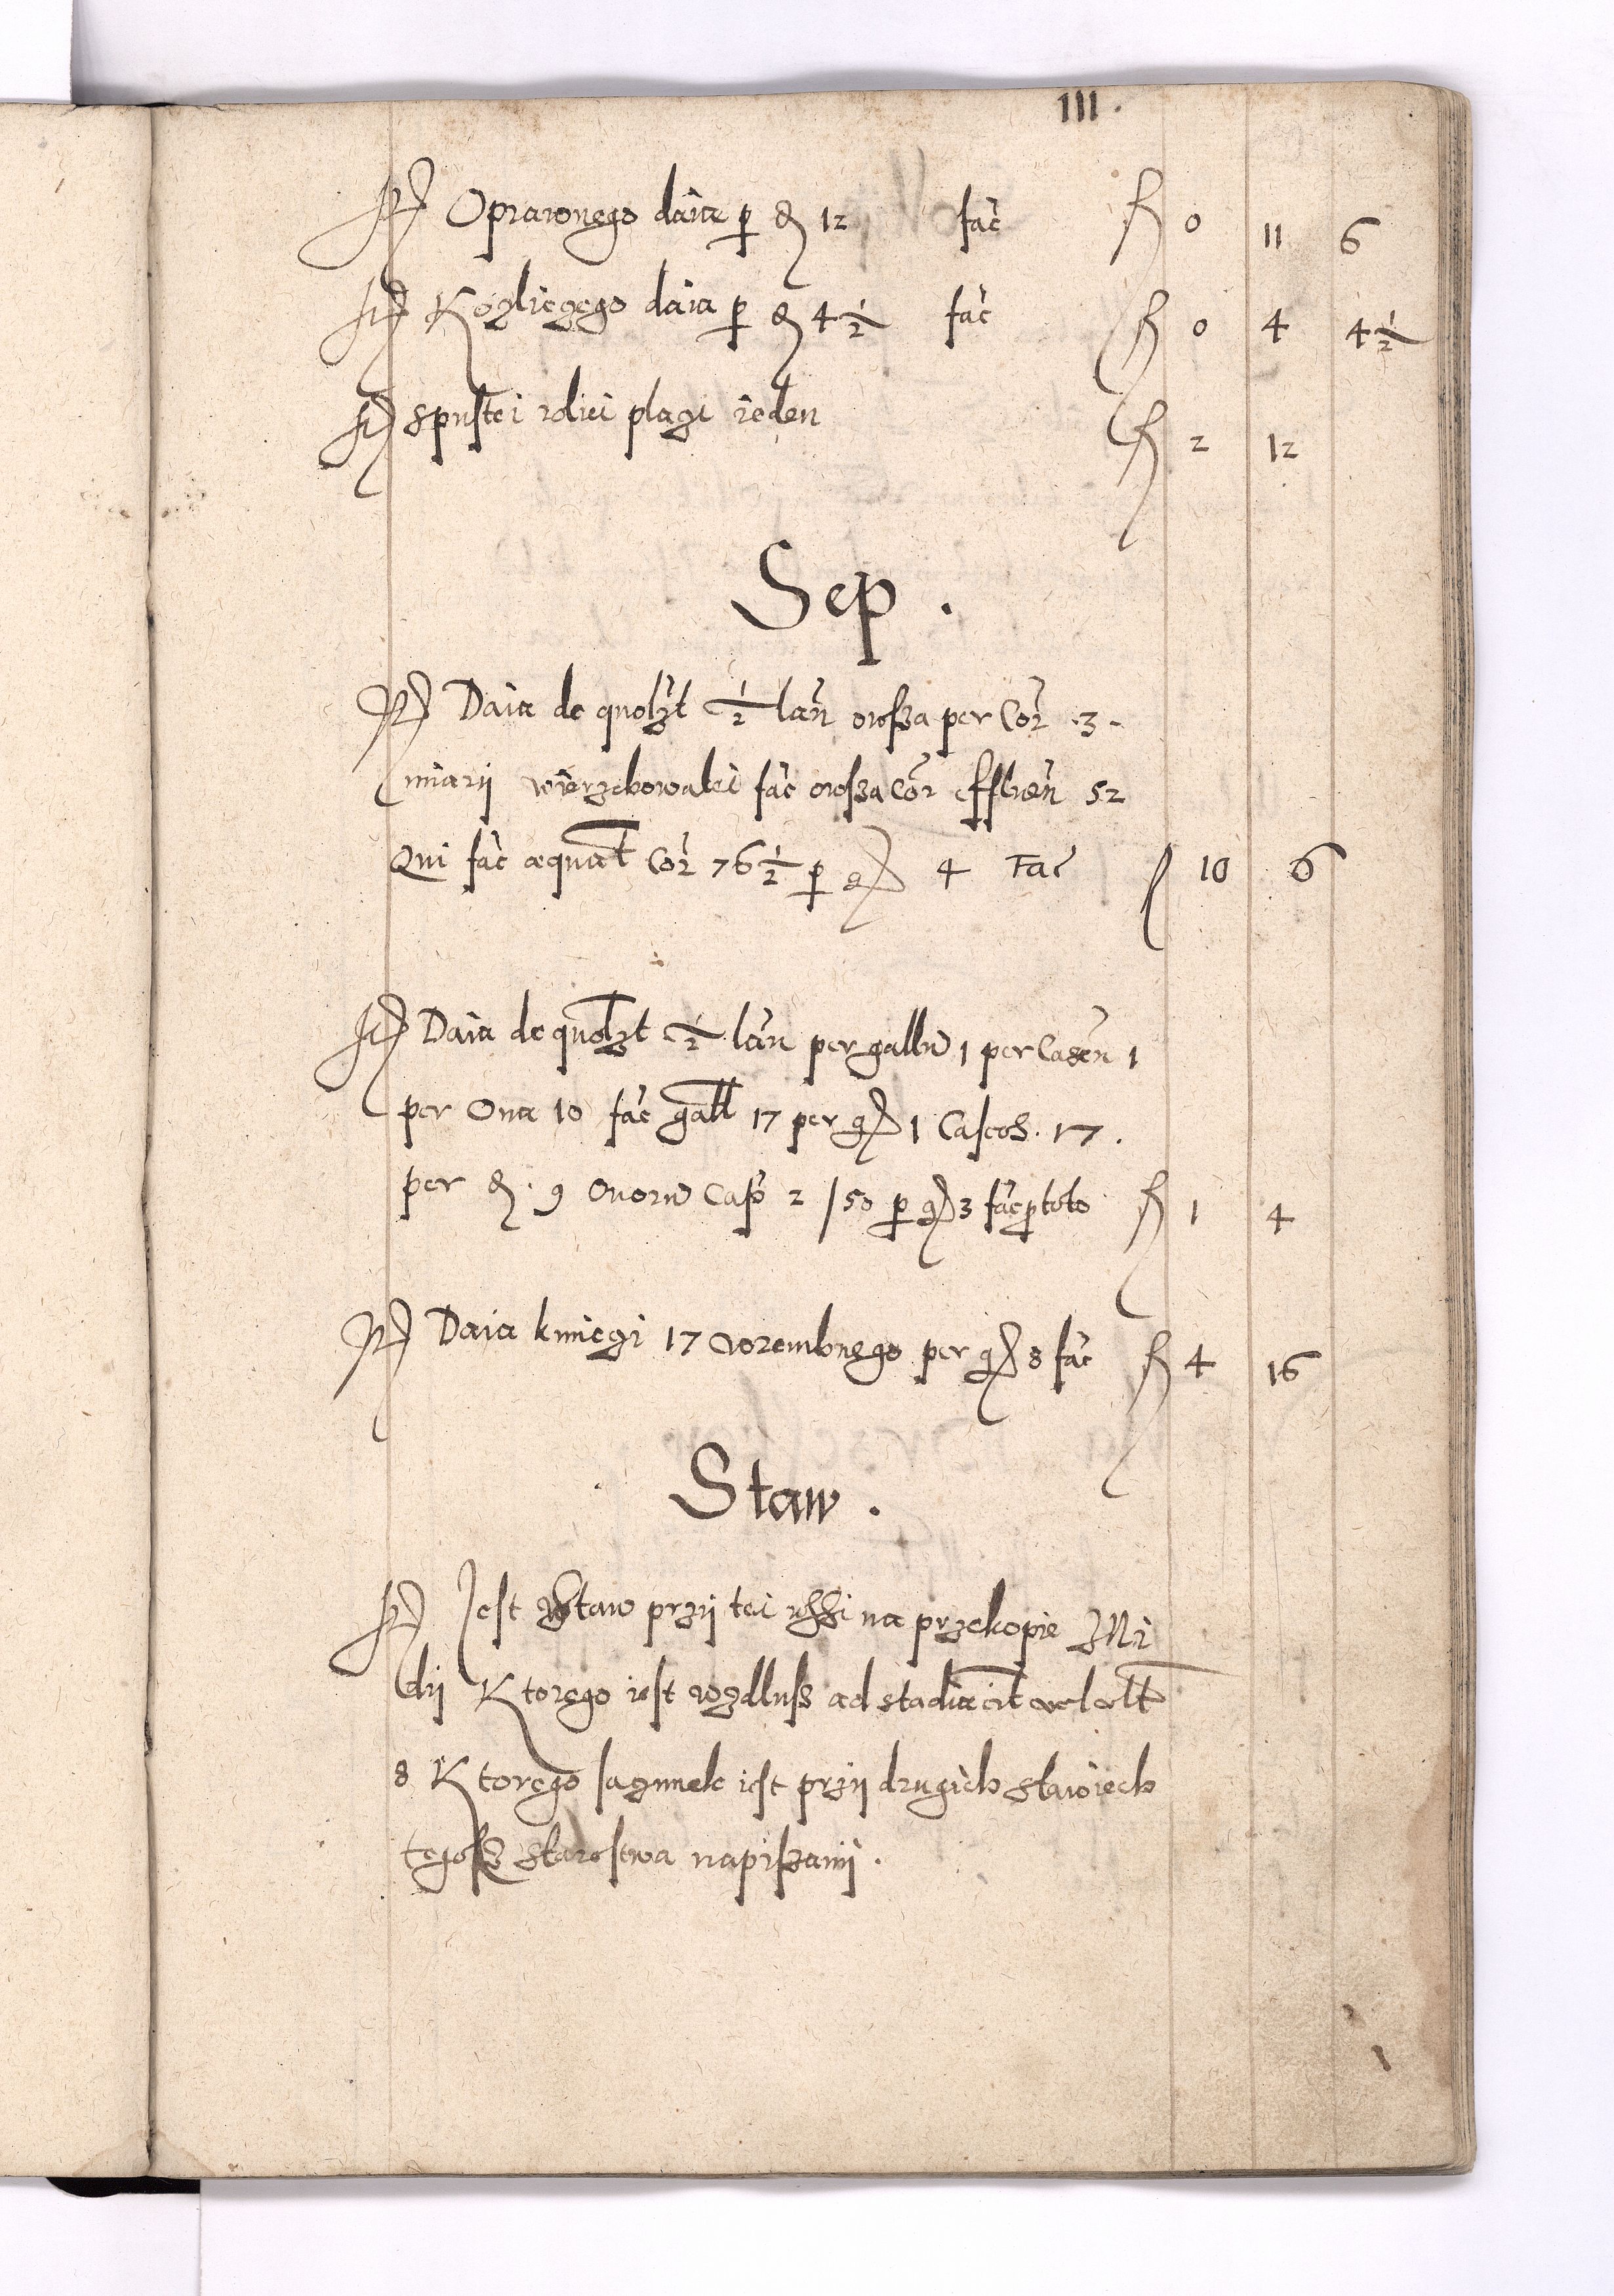 111.
It Oprawnego daia p d 12 fac̃ f 0 11 6
It Kozliczego daia p d 4 1/2 fac̃ f 0 4 4 1/2
It spustei roliei placzi ieden f 2 12
Sep.
It Daia de quolzt 1/2 lan̄ owssa per Cor̃ 3.
miarii wierzchowatei fac̃ owssa Cor̃ 52
Qui fac̃ æquat̃ Cor̃ 76 1/2 p g 4 Fac̃ f 10 6
It Daia de quolzt 1/2 lan̄ per gallū 1 per Caseū 1
per Oua 10 fac̃ gall 17 per g 1 Caseos. 17.
per d. 9 Ouorū Cap 2 / 50 p g 3 fac̃ p toto f 1 4
It Daia kmieczi 17 worembnego per g 8 fac̃ f 4 16
Staw.
It Jest Staw przij tei wssi na przekopie
Ktorego iest wzdlusz ad stadia vel
8 Ktorego sazunek iest przij drugich stawiech
tegosz starostwa napiszanij.